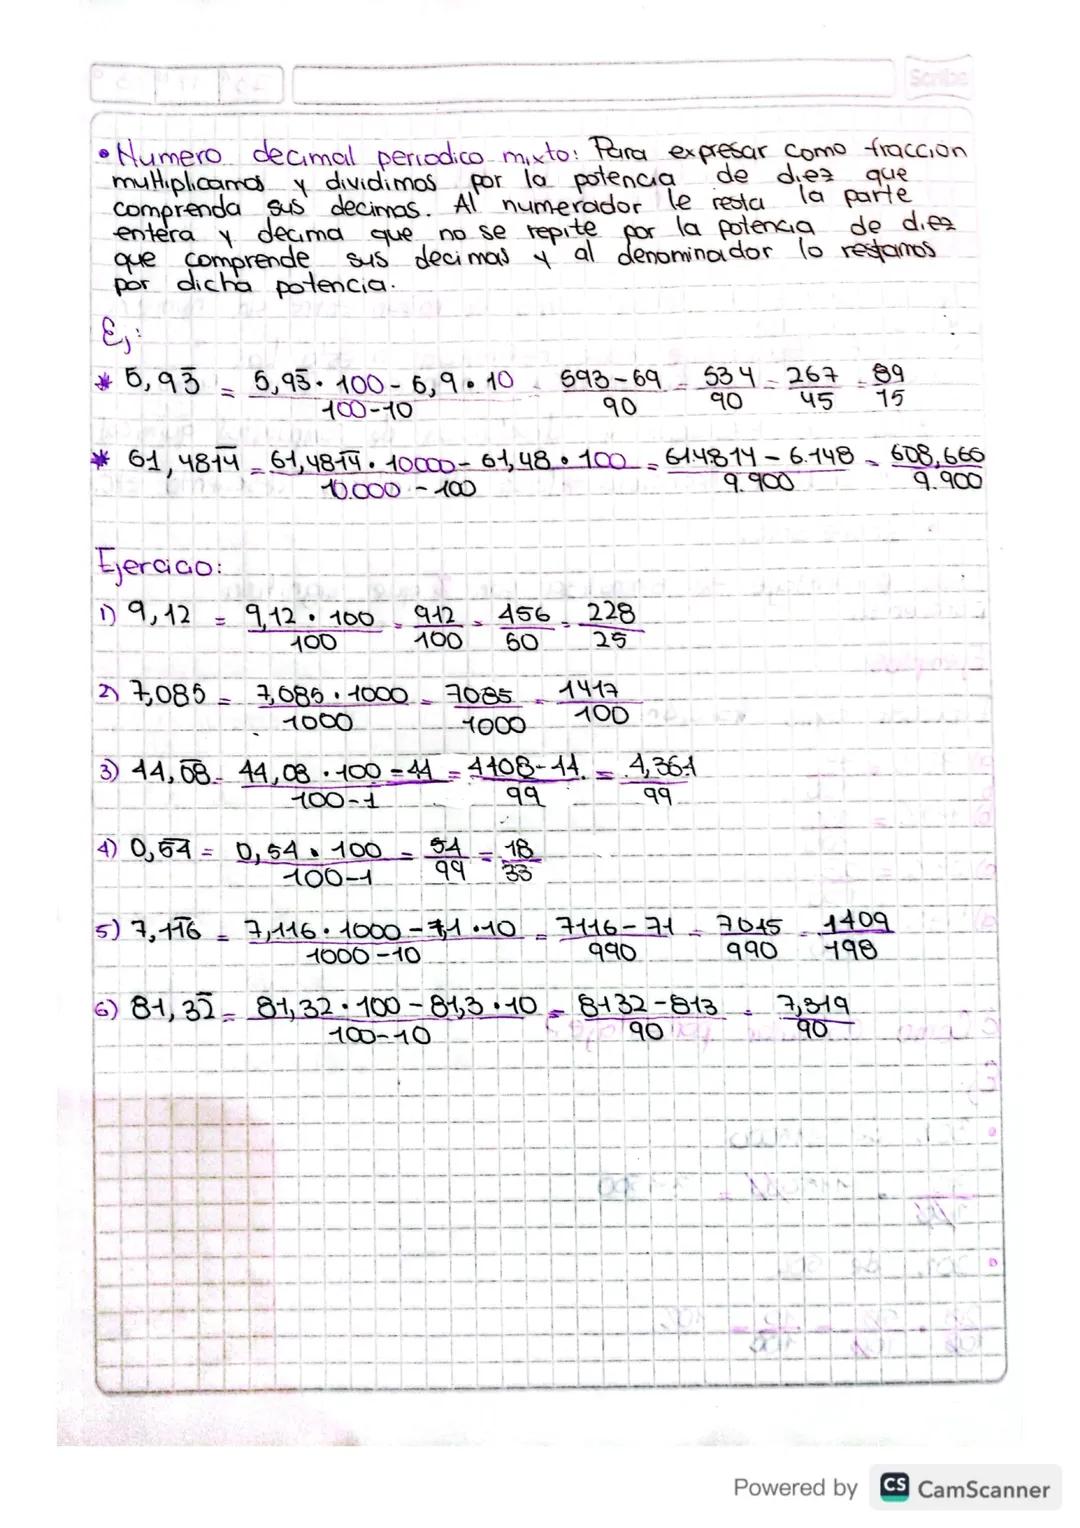 Scribe
• Numero decimal periodico mixto: Para expresar como fracción
multiplicamos y dividimos por la potencia de diez que
comprenda sus decimas. Al numerador le resta la parte
entera y decima que no se repite por la potencia de diez
que comprende sus decimas y al denominador lo restamos
por dicha potencia.
Ej:
* 5,93̅ = 5,93̅ · 100 - 5,9 · 10 / 100-10 = 593-59 / 90 = 534/90 = 267/45 = 89/15
* 61,481̅4̅ = 61,481̅4̅ · 10000 - 61,48 · 100 / 10.000 - 100 = 614814 - 6.148 / 9.900 = 608,666 / 9.900
Ejercicio:
1) 9,12 = 9,12 · 100 / 100 = 912/100 = 456/50 = 228/25
2) 7,085 = 7,085 · 1000 / 1000 = 7085/1000 = 1417/100
3) 44,0̅8̅ = 44,08 · 100 - 44 / 100-1 = 4408-44 / 99 = 4,364 / 99
4) 0,5̅4̅ = 0,54 · 100 / 100-1 = 54/99 = 18/33
5) 7,11̅6̅ = 7,116 · 1000 - 7,1 · 10 / 1000-10 = 7116-71 / 990 = 7045/990 = 1409/198
6) 81,32̅ = 81,32 · 100 - 81,3 · 10 / 100-10 = 8132-813 / 90 = 7,319 / 90
Powered by CS CamScanner